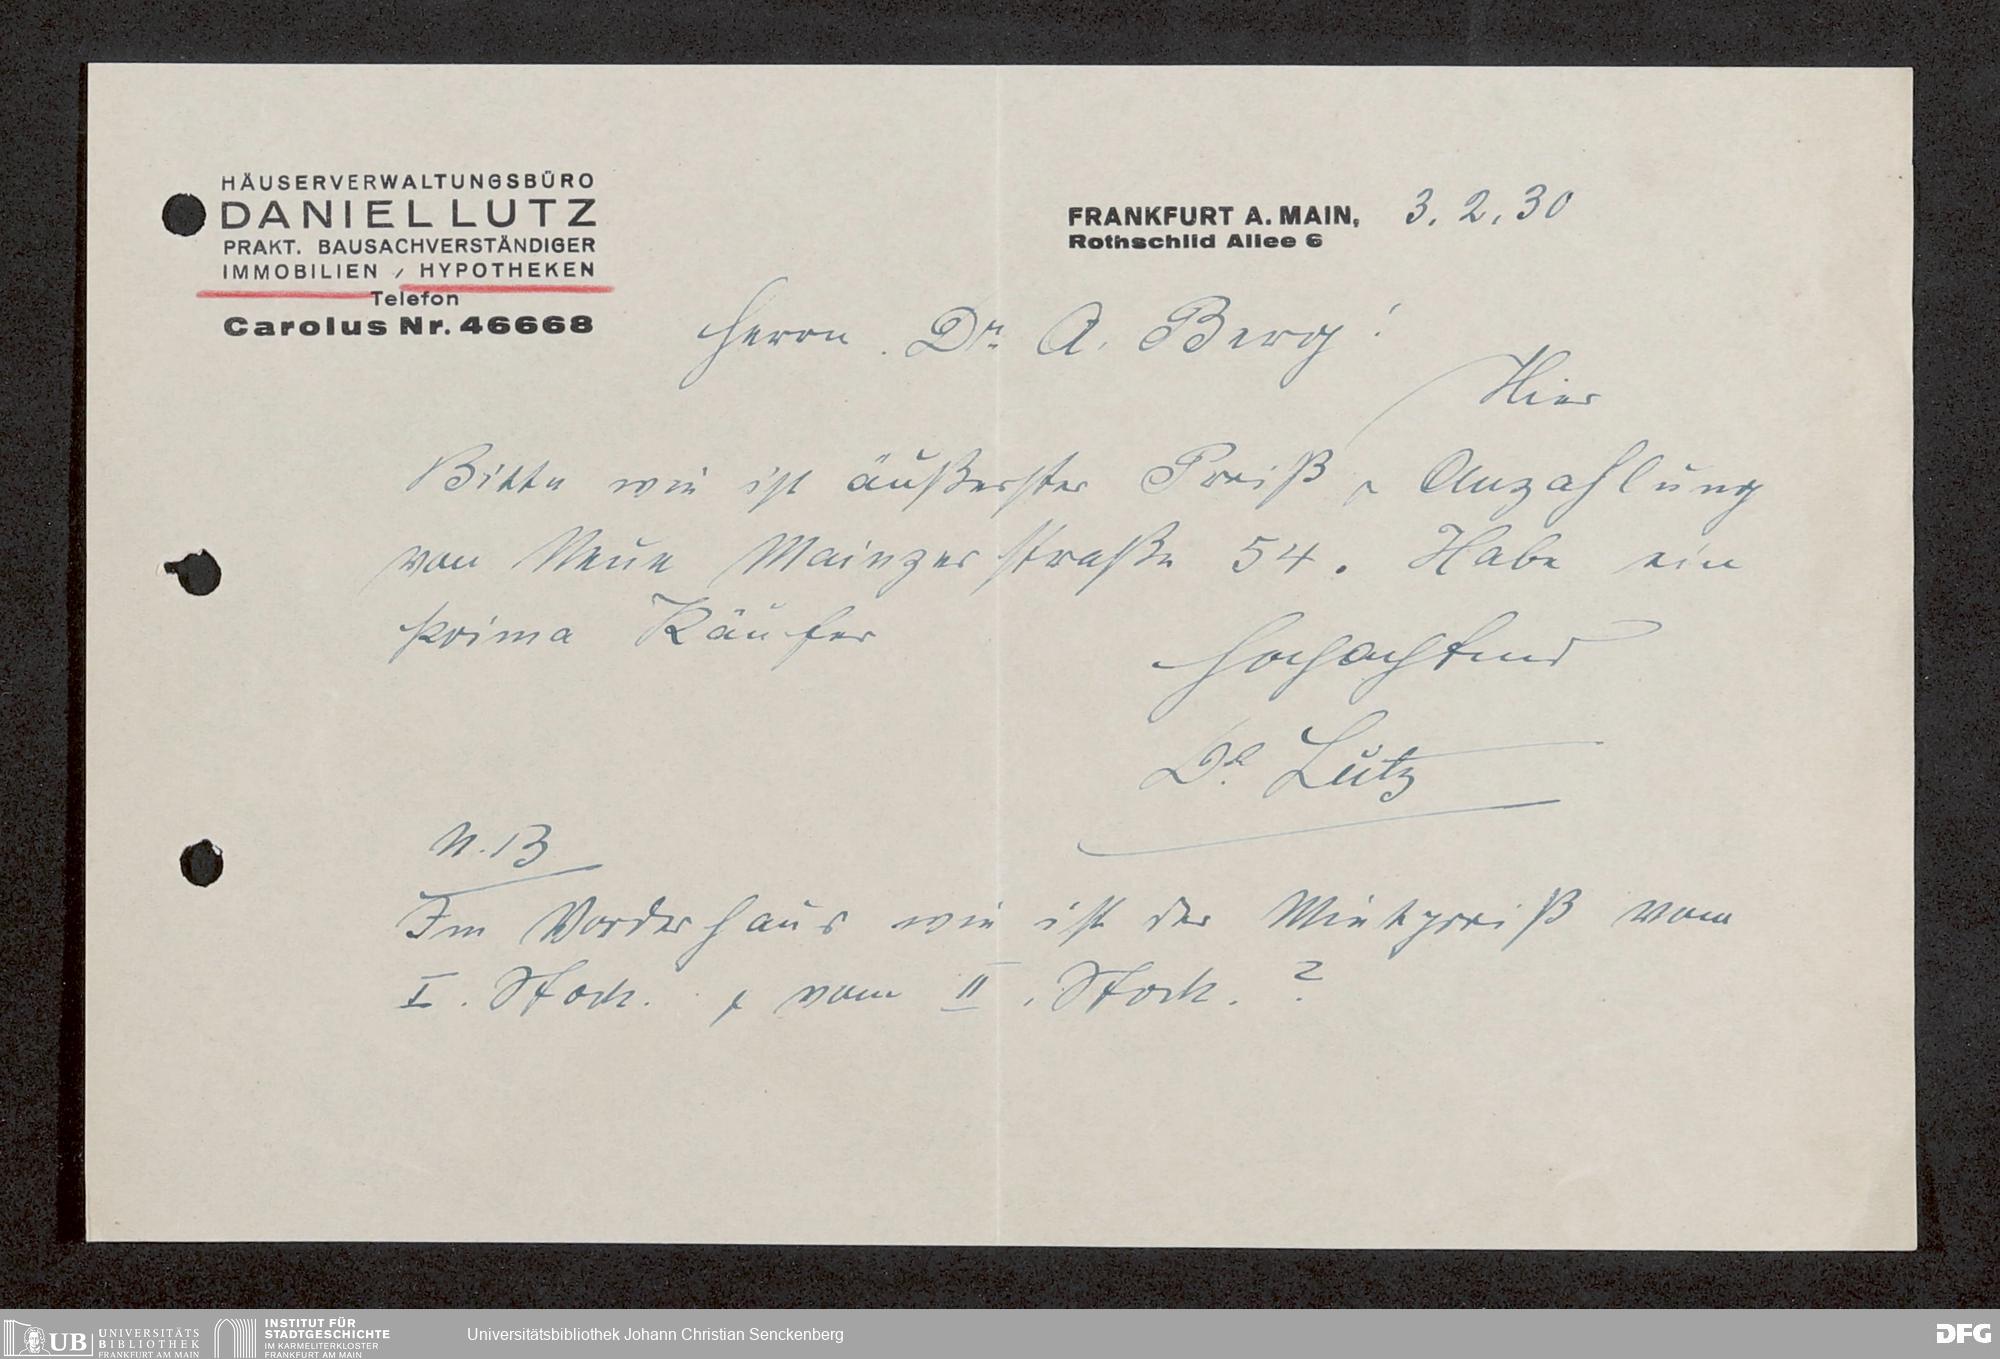 HÄUSERVERWALTUNGSBÜRO
DANIEL LUTZ
PRAKT. BAUSACHVERSTÄNDIGER
IMMOBILIEN / HYPOTHEKEN
Telefon
Carolus Nr. 46668
FRANKFURT A. MAIN, 3. 2. 30
Rothschild Allee 6
Herrn. Dr. A. Berg!
Hier
Bitte wie ist äußerster Preiß & Anzahlung
von Neue Mainzerstraße 54. Habe ein
prima Käufer
Hochachtend
Dl. Lutz
N.B
Im Vorderhaus wie ist der Mietpreiß vom
I. Stock. & vom II. Stock. ?
UB UNIVERSITÄTS
BIBLIOTHEK
FRANKFURT AM MAIN
INSTITUT FÜR
STADTGESCHICHTE
IM KARMELITERKLOSTER
FRANKFURT AM MAIN
Universitätsbibliothek Johann Christian Senckenberg
DFG